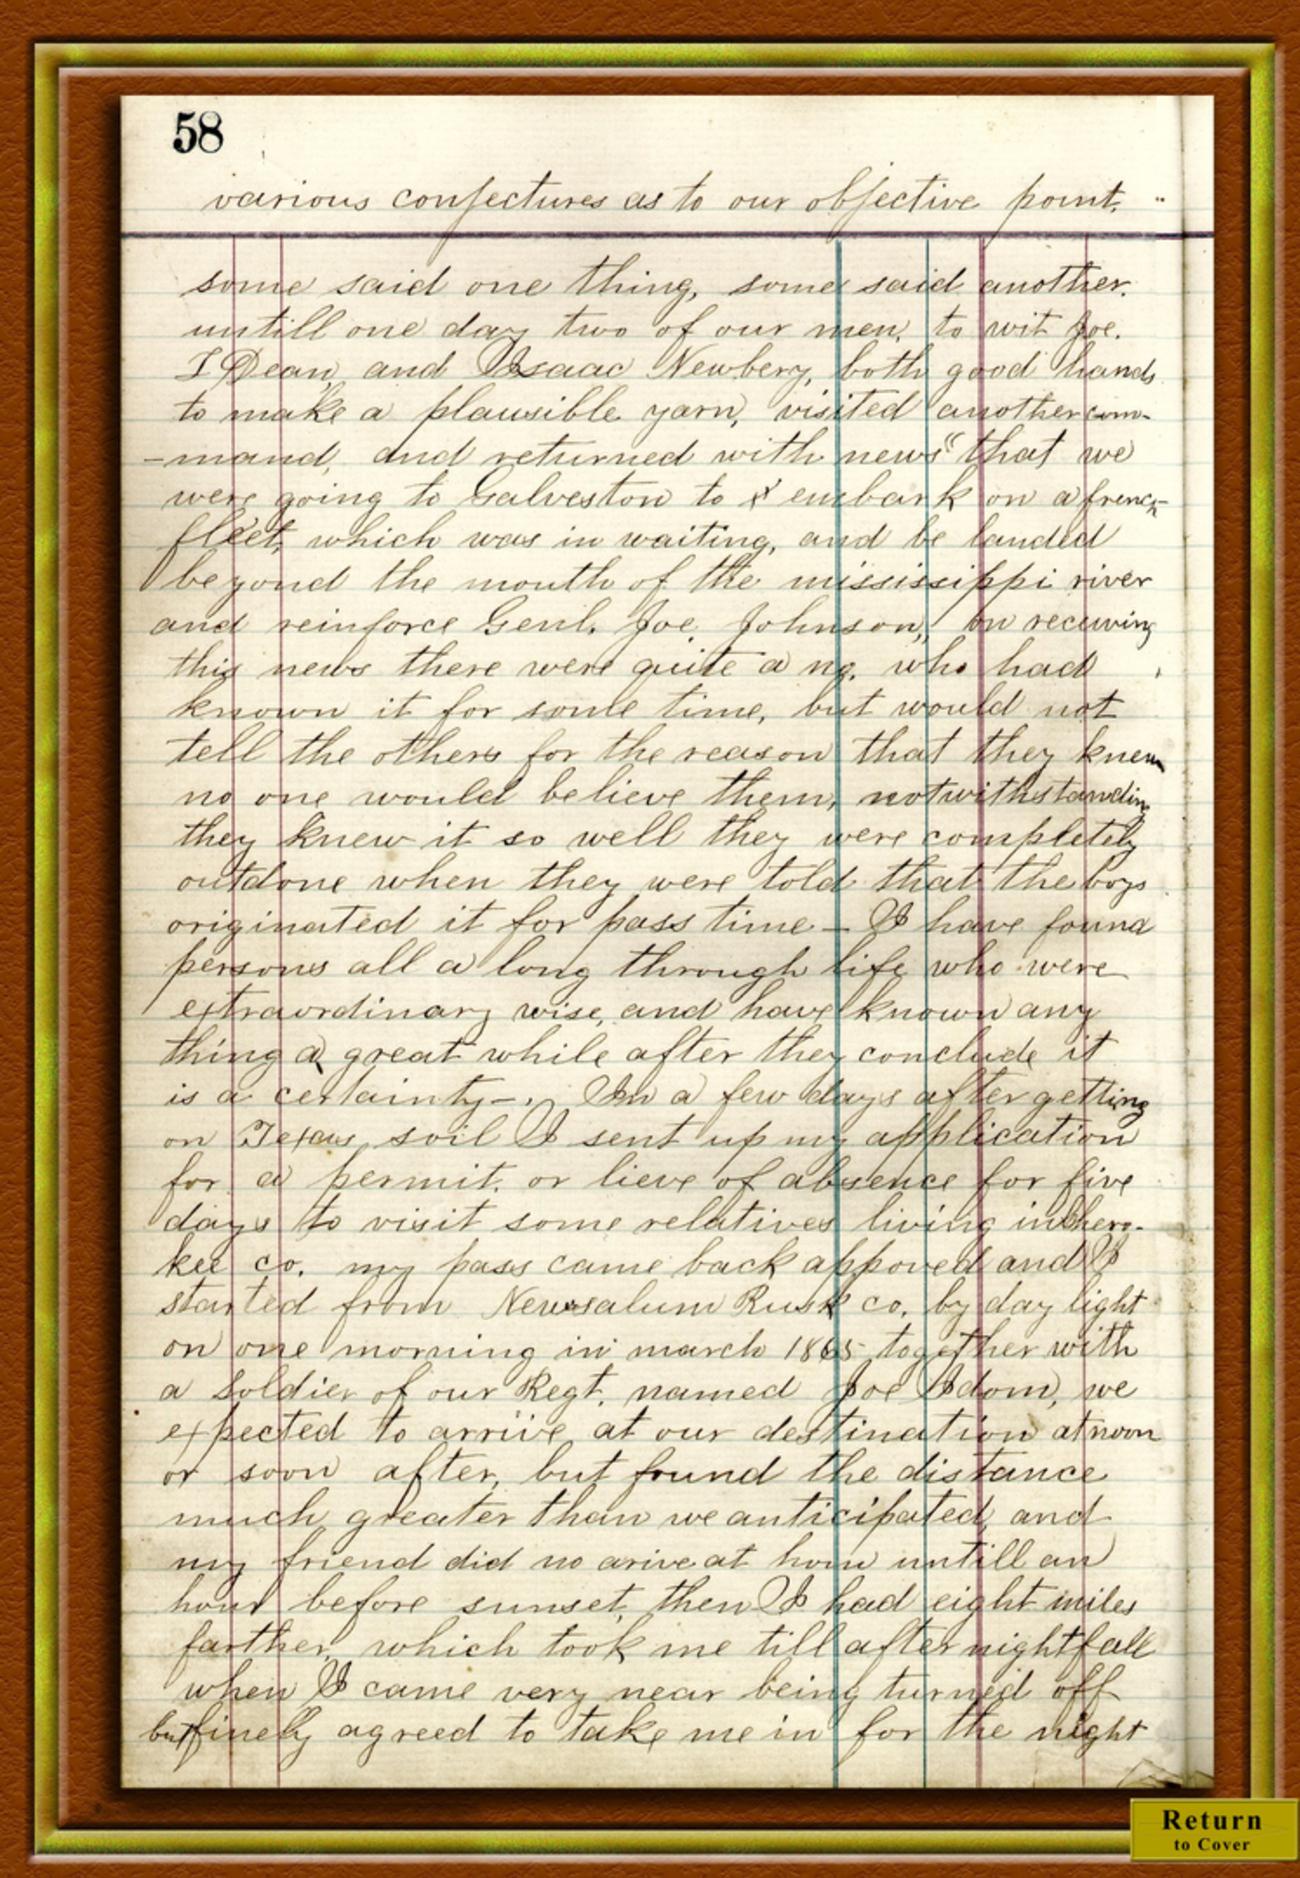 58
various conjectures as to our objective point.
some said one thing, some said another.
untill one day two of our men, to wit Joe.
I Dean, and Isaac Newbery, both good hands
to make a plausible yarn, visited another com-
-mand, and returned with news "that we
were going to Galveston to embark on a french
fleet, which was in waiting, and be landed
beyond the mouth of the mississippi river
and reinforce Genl. Joe. Johnson, on receiving
this news there were quite a no. who had
known it for some time, but would not
tell the others for the reason that they knew
no one would believe them, notwithstanding
they knew it so well they were completely
outdone when they were told that the boys
originated it for pass time — I have found
persons all a long through life who were
extraordinary wise, and have known any
thing a great while after they conclude it
is a certainty-. In a few days after getting
on Texas soil I sent up my application
for a permit. or lieve of absence for five
days to visit some relatives living in Chero-
kee co. my pass came back appoved and I
started from Newsalum Rusk co. by day light
on one morning in march 1865 together with
a soldier of our Regt. named Joe Idom, we
expected to arrive at our destination at noon
or soon after, but found the distance
much greater than we anticipated, and
my friend did no arive at hom untill an
hour before sunset, then I had eight miles
farther, which took me till after nightfall
when I came very near being turned off
but finely agreed to take me in for the night
Return
to Cover